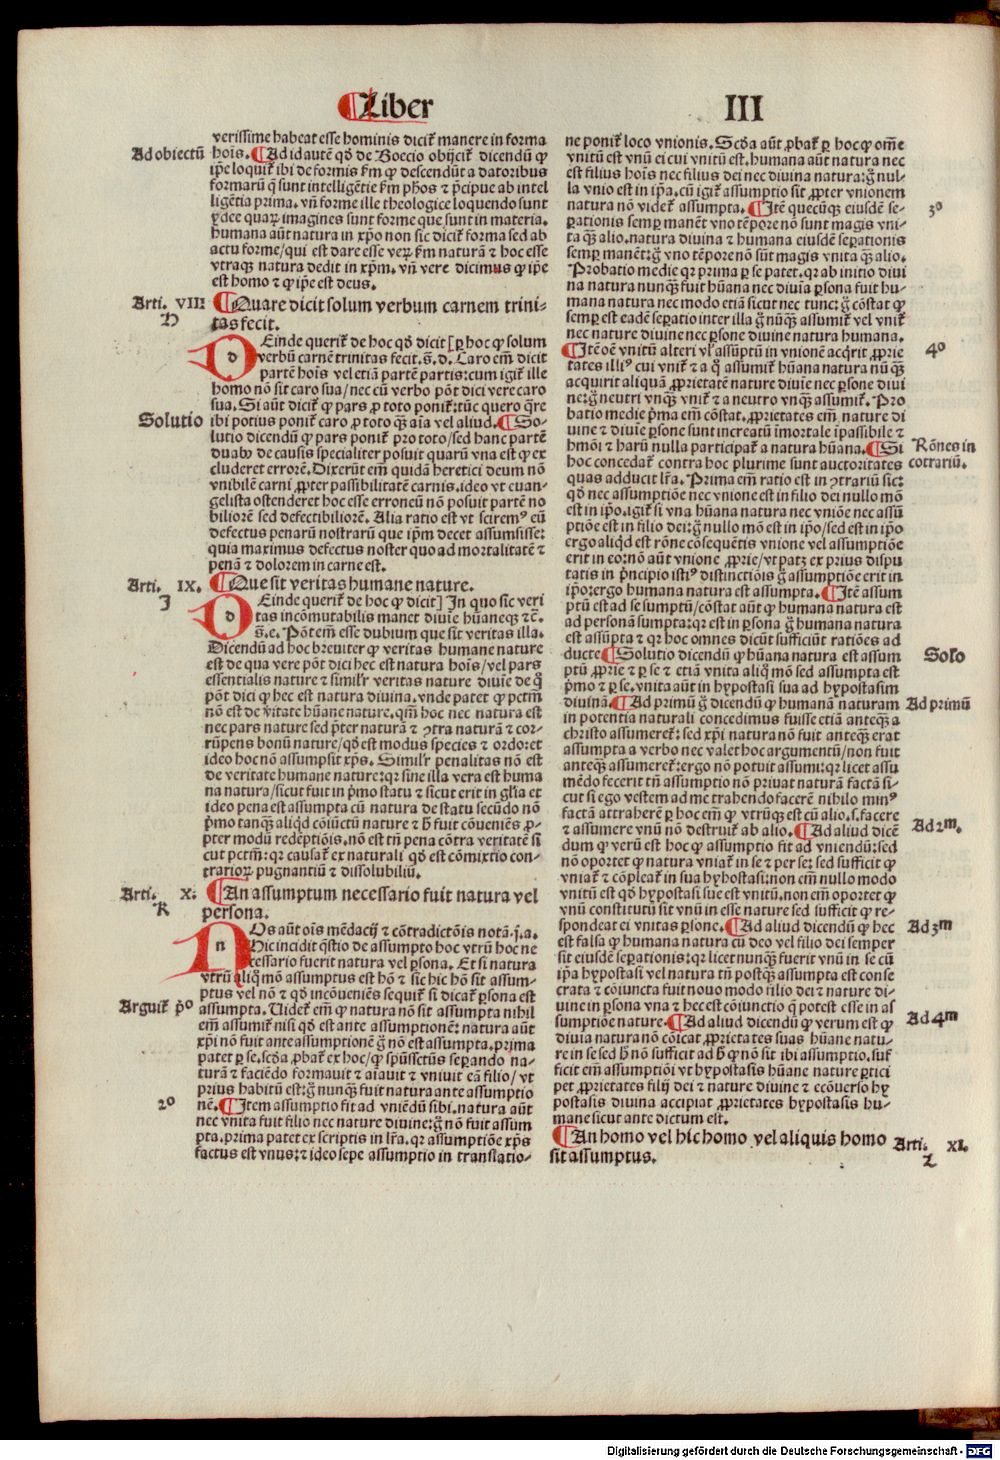 ¶Liber III
verissime habeat esse hominis dicit᷑ manere in forma
Ad obiectū
hoīs. ¶Ad id autē qd̄ de Boecio obijcit᷑ dicendū ꝙ
ip̄e loquit᷑ ibi de formis fm̄ ꝙ descendūt a datoribus
formarū q̄ sunt intelligētie fm̄ phōs ⁊ p̄cipue ab intel
ligētia prima. vn̄ forme ille theologice loquendo sunt
ydee quaꝝ imagines sunt forme que sunt in materia.
humana aūt natura in xp̄o non sic̄ dicit᷑ forma sed ab
actu forme/qui est dare esse veꝝ fm̄ naturā ⁊ hoc esse
vtraqꝫ natura dedit in xp̄m. vn̄ vere dicimus ꝙ ip̄e
est homo ⁊ ꝙ ip̄e est deus.
Arti. VIII
H
¶Quare dicit solum verbum carnem trini-
tas fecit.
DEinde querit᷑ de hoc qd̄ dicit [ꝑ hoc ꝙ solum
verbū carnē trinitas fecit. s̄. d. Caro em̄ dicit
partē hoīs vel etiā partē partis: cum igit᷑ ille
homo nō sit caro sua/nec cū verbo pōt dici vere caro
sua. Si aūt dicit᷑ ꝙ pars ꝓ toto ponit᷑: tūc quero q̄re
Solutio
ibi potius ponit᷑ caro ꝓ toto qꝫ aīa vel aliud. ¶So-
lutio dicendū ꝙ pars ponit᷑ pro toto/sed hanc partē
duabꝰ de causis specialiter posuit quarū vna est ꝙ ex
cluderet errorē. Dixerūt em̄ quidā heretici deum nō
vnibilē carni ꝓpter passibilitatē carnis. ideo vt euan-
gelista ostenderet hoc esse erroneū nō posuit partē no
biliorē sed defectibiliorē. Alia ratio est vt sciremꝰ eū
defectus penarū nostrarū que ip̄m decet assumsisse:
quia maximus defectus noster quo ad mortalitatē ⁊
penā ⁊ dolorem in carne est.
Arti. IX.
J
¶Que sit veritas humane nature.
DEinde querit᷑ de hoc ꝙ dicit] In quo sic veri
tas incōmutabilis manet diuīe hūaneqꝫ ⁊c̄.
s̄. e. Pōt em̄ esse dubium que sit veritas illa.
Dicendū ad hoc breuiter ꝙ veritas humane nature
est de qua vere pōt dici hec est natura hoīs/vel pars
essentialis nature ⁊ similr̄ veritas nature diuīe de q̄
pōt dici ꝙ hec est natura diuina. vnde patet ꝙ pctm̄
nō est de v̄itate hūane nature. qm̄ hoc nec natura est
nec pars nature sed p̄ter naturā ⁊ ↄtra naturā ⁊ cor-
rūpens bonū nature/qd̄ est modus species ⁊ ordo: et
ideo hoc nō assumpsit xp̄s. Similr̄ penalitas nō est
de veritate humane nature: qr sine illa vera est huma
na natura/sicut fuit in p̄mo statu ⁊ sicut erit in gl̄ia et
ideo pena est assumpta cū natura de statu secūdo nō
p̄mo tanqꝫ aliqd cōiūctū nature ⁊ h̄ fuit cōueniēs ꝓ-
pter modū redēptiōis. nō est tn̄ pena cōtra veritatē si
cut pctm̄: qr causat᷑ ex naturali qd̄ est cōmixtio con-
trarioꝝ pugnantiū ⁊ dissolubiliū.
Arti. X:
K
¶An assumptum necessario fuit natura vel
persona.
NOs aūt oīs mēdacij ⁊ cōtradictōis notā. j. a.
Hic incidit q̄stio de assumpto hoc vtrū hoc ne
cessario fuerit natura vel ꝑsona. Et si natura
vtrū aliq̄ mō assumptus est hō ⁊ sic̄ hic hō sit assum-
ptus vel nō ⁊ qd̄ incōueniēs sequit᷑ si dicat᷑ ꝑsona est
Arguit᷑ p̄o
assumpta. Uidet᷑ em̄ ꝙ natura nō sit assumpta nihil
em̄ assumit᷑ nisi qd̄ est ante assumptionē: natura aūt
xp̄i nō fuit ante assumptionē g̊ nō est assumpta. prima
patet ꝑ se. scd̄a ꝓbat᷑ ex hoc/ꝙ spūssctūs seꝑando na-
turā ⁊ faciēdo formauit ⁊ aīauit ⁊ vniuit eā filio/vt
prius habitū est: g̊ nunqꝫ fuit natura ante assumptio
2⁰
nē. ¶Item assumptio fit ad vniēdū sibi. natura aūt
nec vnita fuit filio nec nature diuine: g̊ nō fuit assum
pta. prima patet ex scriptis in lr̄a. qr assumptiōe xp̄s
factus est vnus: ⁊ ideo sepe assumptio in translatio-
ne ponit᷑ loco vnionis. Scd̄a aūt ꝓbat᷑ ꝑ hoc ꝙ om̄e
vnitū est vnū ei cui vnitū est. humana aūt natura nec
est filius hoīs nec filius dei nec diuina natura: g̊ nul-
la vnio est in ip̄a. cū igit᷑ assumptio sit ꝓpter vnionem
3⁰
natura nō videt᷑ assumpta. ¶Itē quecūqꝫ eiusdē se-
ꝑationis semꝑ manēt vno tēpore nō sunt magis vni-
ta qꝫ alio. natura diuina ⁊ humana eiusdē seꝑationis
semꝑ manēt: g̊ vno tēpore nō sūt magis vnita qꝫ alio.
Probatio medie qr prima ꝑ se patet. qr ab initio diui
na natura nunqꝫ fuit hūana nec diuīa ꝑsona fuit hu-
mana natura nec modo etiā sicut nec tunc: g̊ cōstat ꝙ
semꝑ est eadē seꝑatio inter illa g̊ nūqꝫ assumit᷑ vel vnit᷑
nec nature diuine nec ꝑsone diuine natura humana.
4⁰
¶Itē oē vnitū alteri vl̓ assūptū in vnionē acq̄rit ꝓprie
tates illiꝰ cui vnit᷑ ⁊ a q̊ assumit᷑ hūana natura nū qꝫ
acquirit aliquā ꝓprietatē nature diuīe nec ꝑsone diui
ne: g̊ neutri vnqꝫ vnit᷑ ⁊ a neutro vnqꝫ assumit᷑. Pro
batio medie p̄ma em̄ cōstat. ꝓprietates em̄ nature di
uine ⁊ diuīe ꝑsone sunt increatū īmortale īpassibile ⁊
Rōnes in
cōtrariū.
hmōi ⁊ harū nulla participat᷑ a natura hūana. ¶Si
hoc concedat᷑ contra hoc plurime sunt auctoritates
quas adducit lr̄a. Prima em̄ ratio est in ↄtrariū sic:
qd̄ nec assumptiōe nec vnione est in filio dei nullo mō
est in ip̄o. igit᷑ si vna hūana natura nec vniōe nec assū
ptiōe est in filio dei: g̊ nullo mō est in ip̄o/sed est in ip̄o
ergo aliqd est rōne cōsequētis vnione vel assumptiōe
erit in eo: nō aūt vnione ꝓprie/vt patꝫ ex prius dispu
tatis in p̄ncipio istiꝰ distinctiōis g̊ assumptiōe erit in
ip̄o: ergo humana natura est assumpta. ¶Itē assum
ptū est ad se sumptū/cōstat aūt ꝙ humana natura est
ad personā sumpta: qr est in ꝑsona g̊ humana natura
est assūpta ⁊ qr hoc omnes dicūt sufficiūt ratiōes ad
Solo
ducte ¶Solutio dicendū ꝙ hūana natura est assum
ptū ꝓprie ⁊ ꝑ se ⁊ etiā vnita aliq̊ mō sed assumpta est
p̄mo ⁊ ꝑ se. vnita aūt in hypostasi sua ad hypostasim
Ad primū
diuinā. ¶Ad primū g̊ dicendū ꝙ humanā naturam
in potentia naturali concedimus fuisse etiā anteqꝫ a
christo assumeret᷑: sed xp̄i natura nō fuit anteqꝫ erat
assumpta a verbo nec valet hoc argumentū/non fuit
anteqꝫ assumeret᷑: ergo nō potuit assumi: qr licet assu
mēdo fecerit tn̄ assumptio nō priuat naturā factā si-
cut si ego vestem ad me trahendo facerē nihilo minꝰ
factā attraherē ꝑ hoc em̄ ꝙ vtrūqꝫ est cū alio. s. facere
Ad 2m.
⁊ assumere vnū nō destruit᷑ ab alio. ¶Ad aliud dicē
dum ꝙ verū est hoc ꝙ assumptio fit ad vniendū: sed
nō oportet ꝙ natura vniat᷑ in se ⁊ per se: sed sufficit ꝙ
vniat᷑ ⁊ cōpleat᷑ in sua hyhostasi: non em̄ nullo modo
vnitū est qd̄ hypostasi sue est vnitū. non em̄ oportet ꝙ
vnū constitutū sit vnū in esse nature sed sufficit ꝙ re-
Ad 3m
spondeat ei vnitas ꝑsone. ¶Ad aliud dicendū ꝙ hec
est falsa ꝙ humana natura cū deo vel filio dei semper
sit eiusdē seꝑationis: qr licet nunqꝫ fuerit vnū in se cū
ip̄a hypostasi vel natura tn̄ postqꝫ assumpta est conse
crata ⁊ cōiuncta fuit nouo modo filio dei ⁊ nature di-
uine in ꝑsona vna ⁊ hec est cōiunctio q̄ potest esse in as
Ad 4m
sumptiōe nature. ¶Ad aliud dicendū ꝙ verum est ꝙ
diuīa natura nō cōicat ꝓprietates suas hūane natu-
re in se sed h̄ nō sufficit ad h̄ ꝙ nō sit ibi assumptio. suf
ficit em̄ assumptiōi vt hypostasis hūane nature ꝑtici
pet ꝓprietates filij dei ⁊ nature diuine ⁊ ecōuerso hy
postasis diuina accipiat ꝓprietates hypostasis hu-
mane sicut ante dictum est.
Arti. XI.
L
¶An homo vel hic homo vel aliquis homo
sit assumptus.
Digitalisierung gefördert durch die Deutsche Forschungsgemeinschaft - DFG